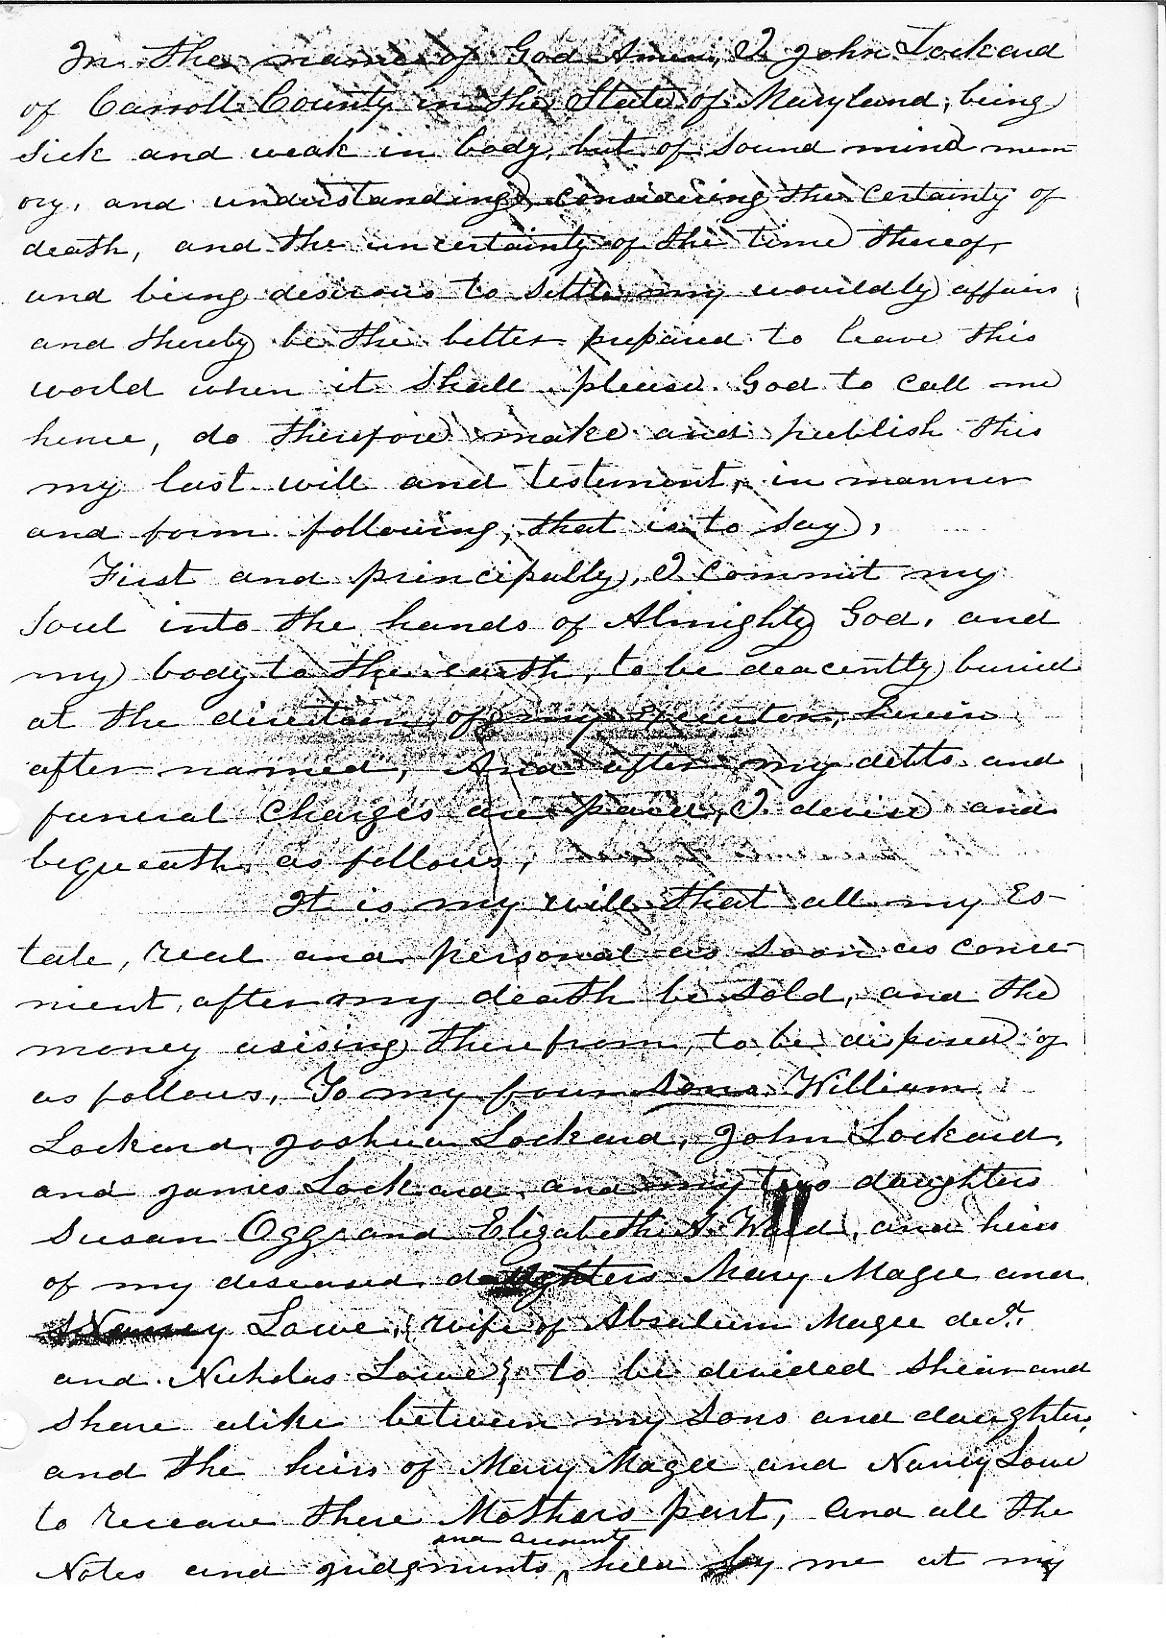 In the name of God Amen, I John Lockard
of Carroll County in the State of Maryland, being
sick and weak in body, but of sound mind mem
ory, and understanding, considering the certainty of
death, and the uncertainty of the time thereof,
and being desirous to settle my worldly affairs,
and thereby be the better prepared to leave this
world when it shall please God to call me
hence, do therefore make and publish this
my last will and testiment, in manner
and form following, that is to say,
First and principally, I commit my
soul into the hands of Almighty God, and
my body to the earth, to be deacently buried
at the direction of my Executors, herein
after named, And after my debts and
funeral charges are paid, I devise and
bequeath as follows,
It is my will that all my Es-
tate, real and personal as soon as conve
nient, after my death be sold, and the
money arising therefrom, to be disposed of
as follows, To my four sons William
Lockard, Joshua Lockard, John Lockard,
and James Lockard, and my two daughters
Susan Ogg, and Elizabeth A. Ward, and heirs
of my deseased daughters Mary Magee and
Nancy Lowe, (wife of Absalum Magee decd.
and Nicholas Lowe) to be devided shear and
share alike between my sons and daughters,
and the heirs of Mary Magee and Nancy Lowe
to receave there Mothers part, and all the
and accounts
Notes and judgments, held by me at my